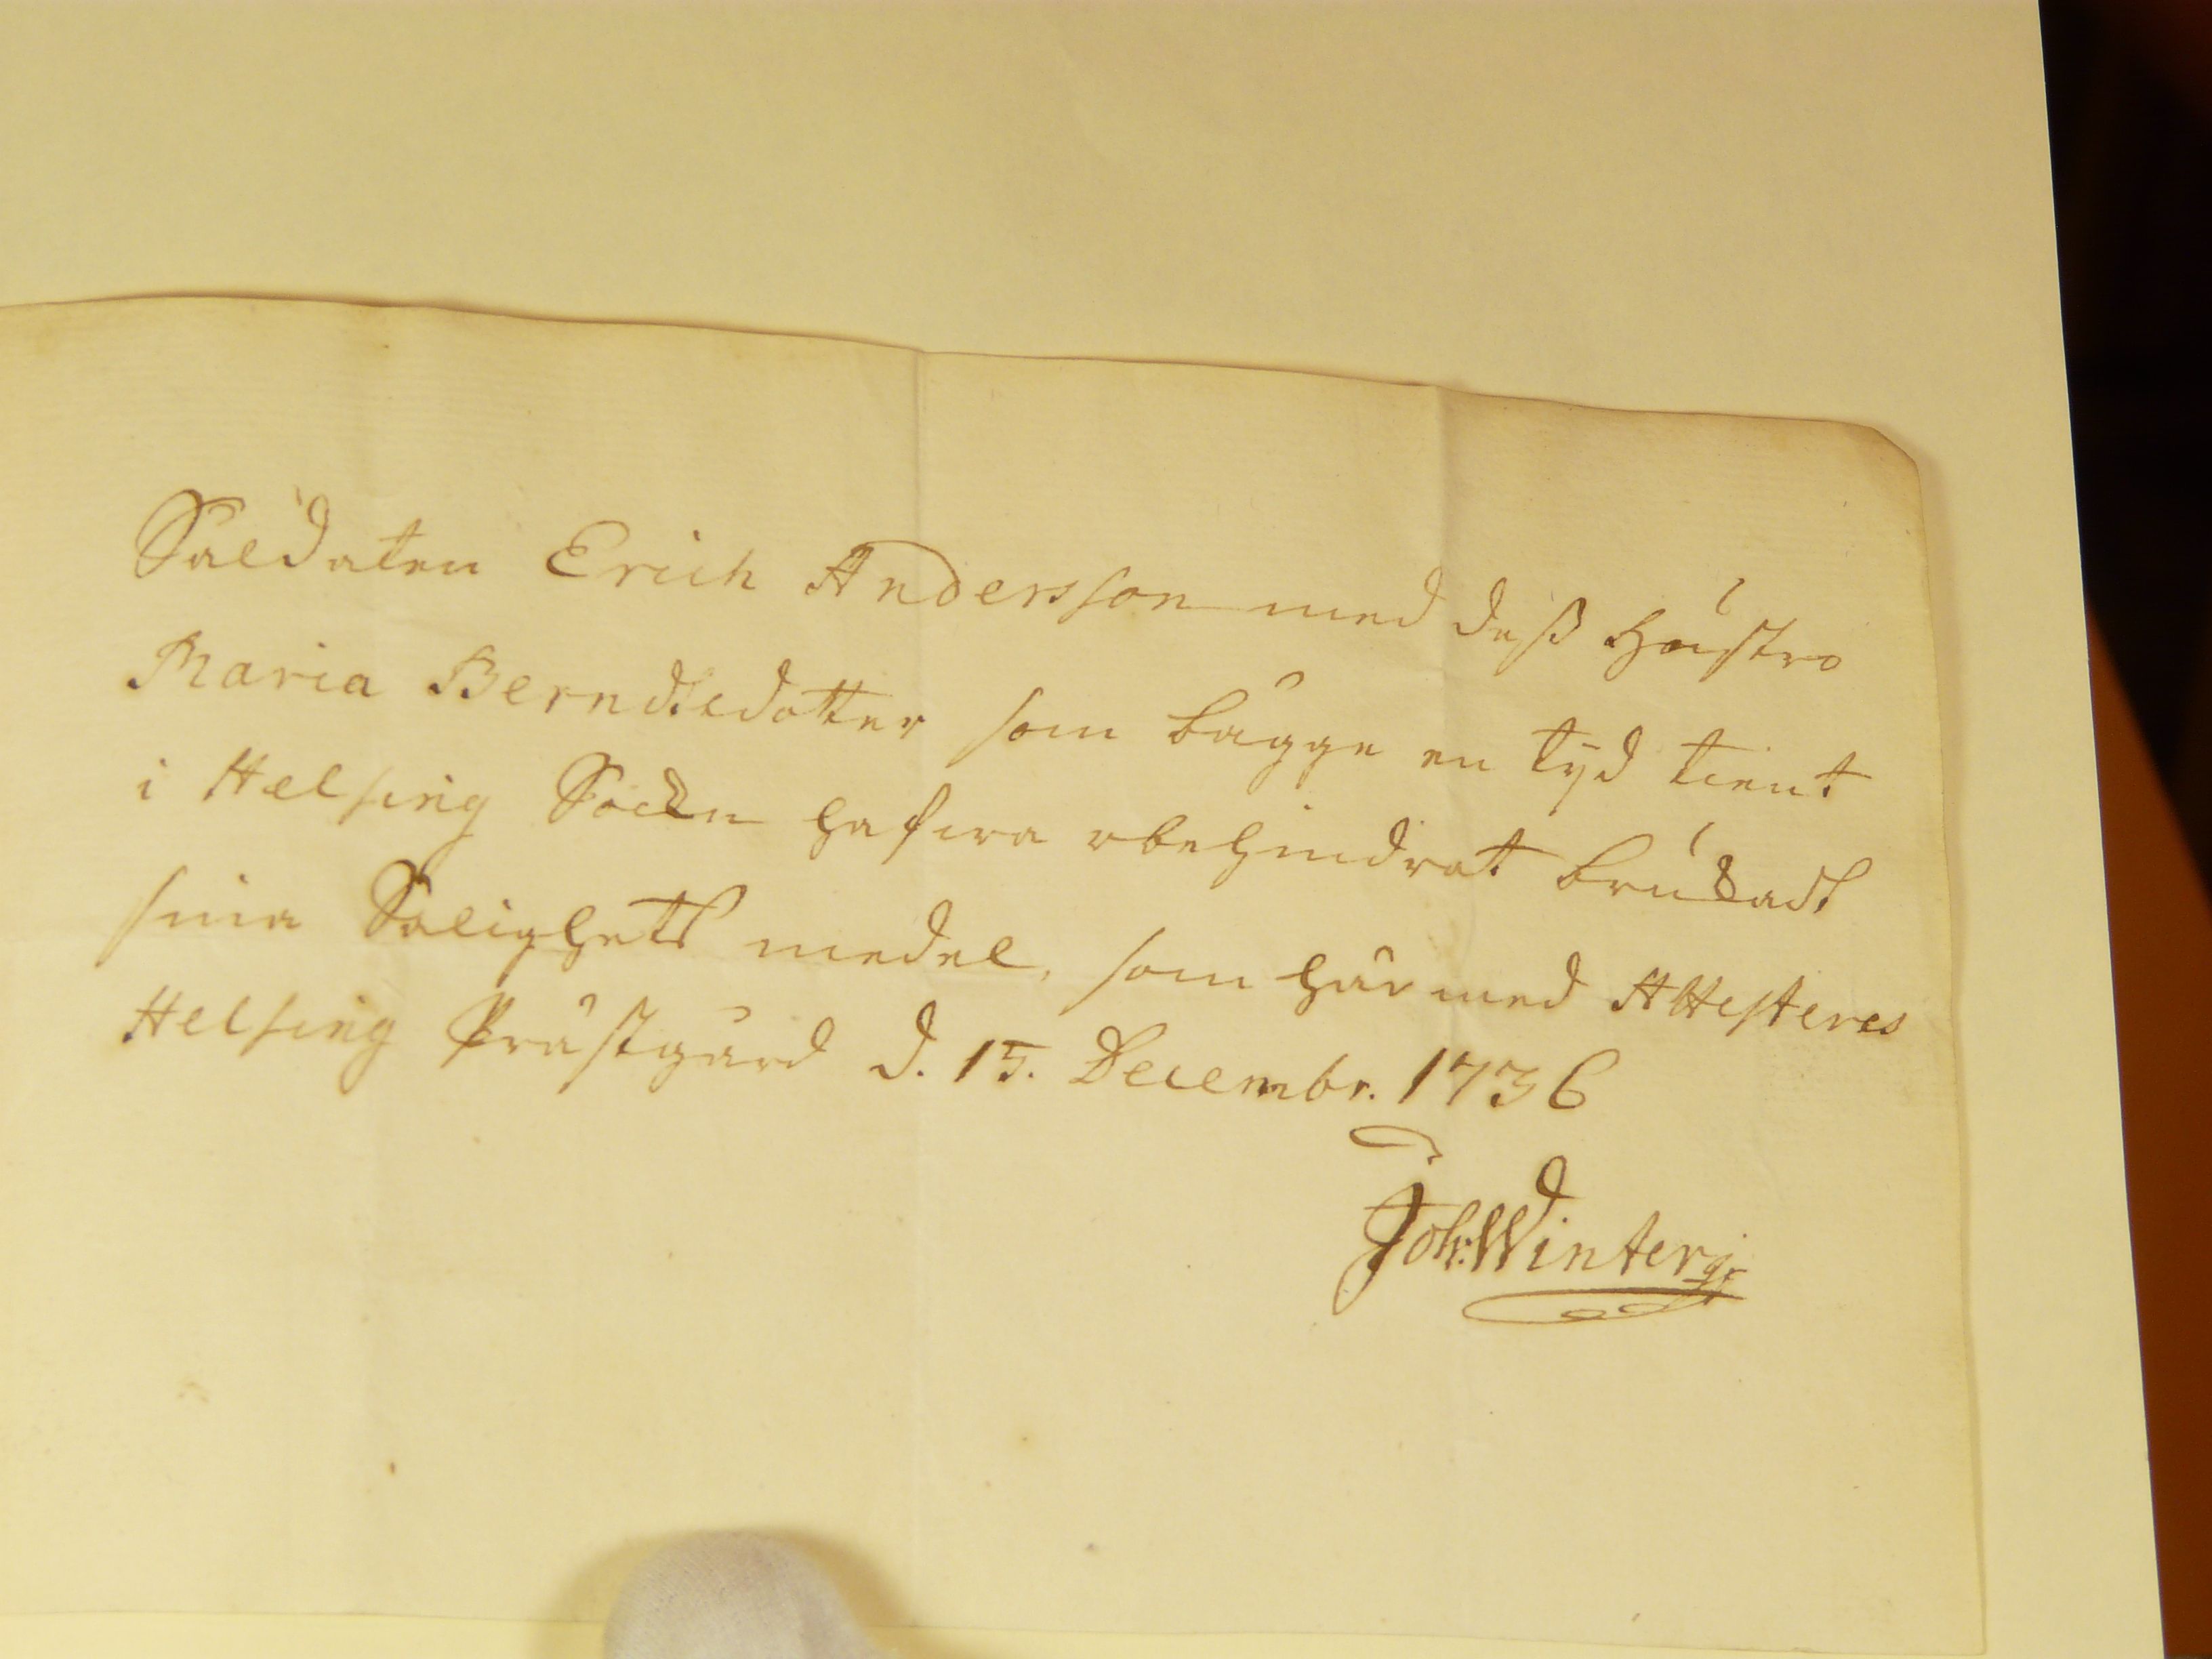 Saldaten Erich Andersson med deß hústro
Maria Berndtsdotter som bägge en tÿd tient
i Helsing Sockn hafwa obehindrat brúkadt
sina Salighets medel, som här med Attesteres
Helsing Prästgård d. 15. Decembr. 1736
Joh: Winter